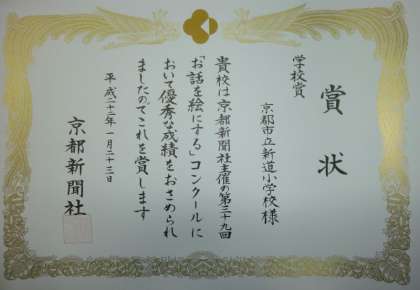 賞状
学校賞
京都市立新道小学校様
貴校は京都新聞社主催の第三十九回
「お話を絵にする」コンクールに
おいて優秀な成績をおさめられ
ましたのでこれを賞します
平成二十二年一月二十三日
京都新聞社